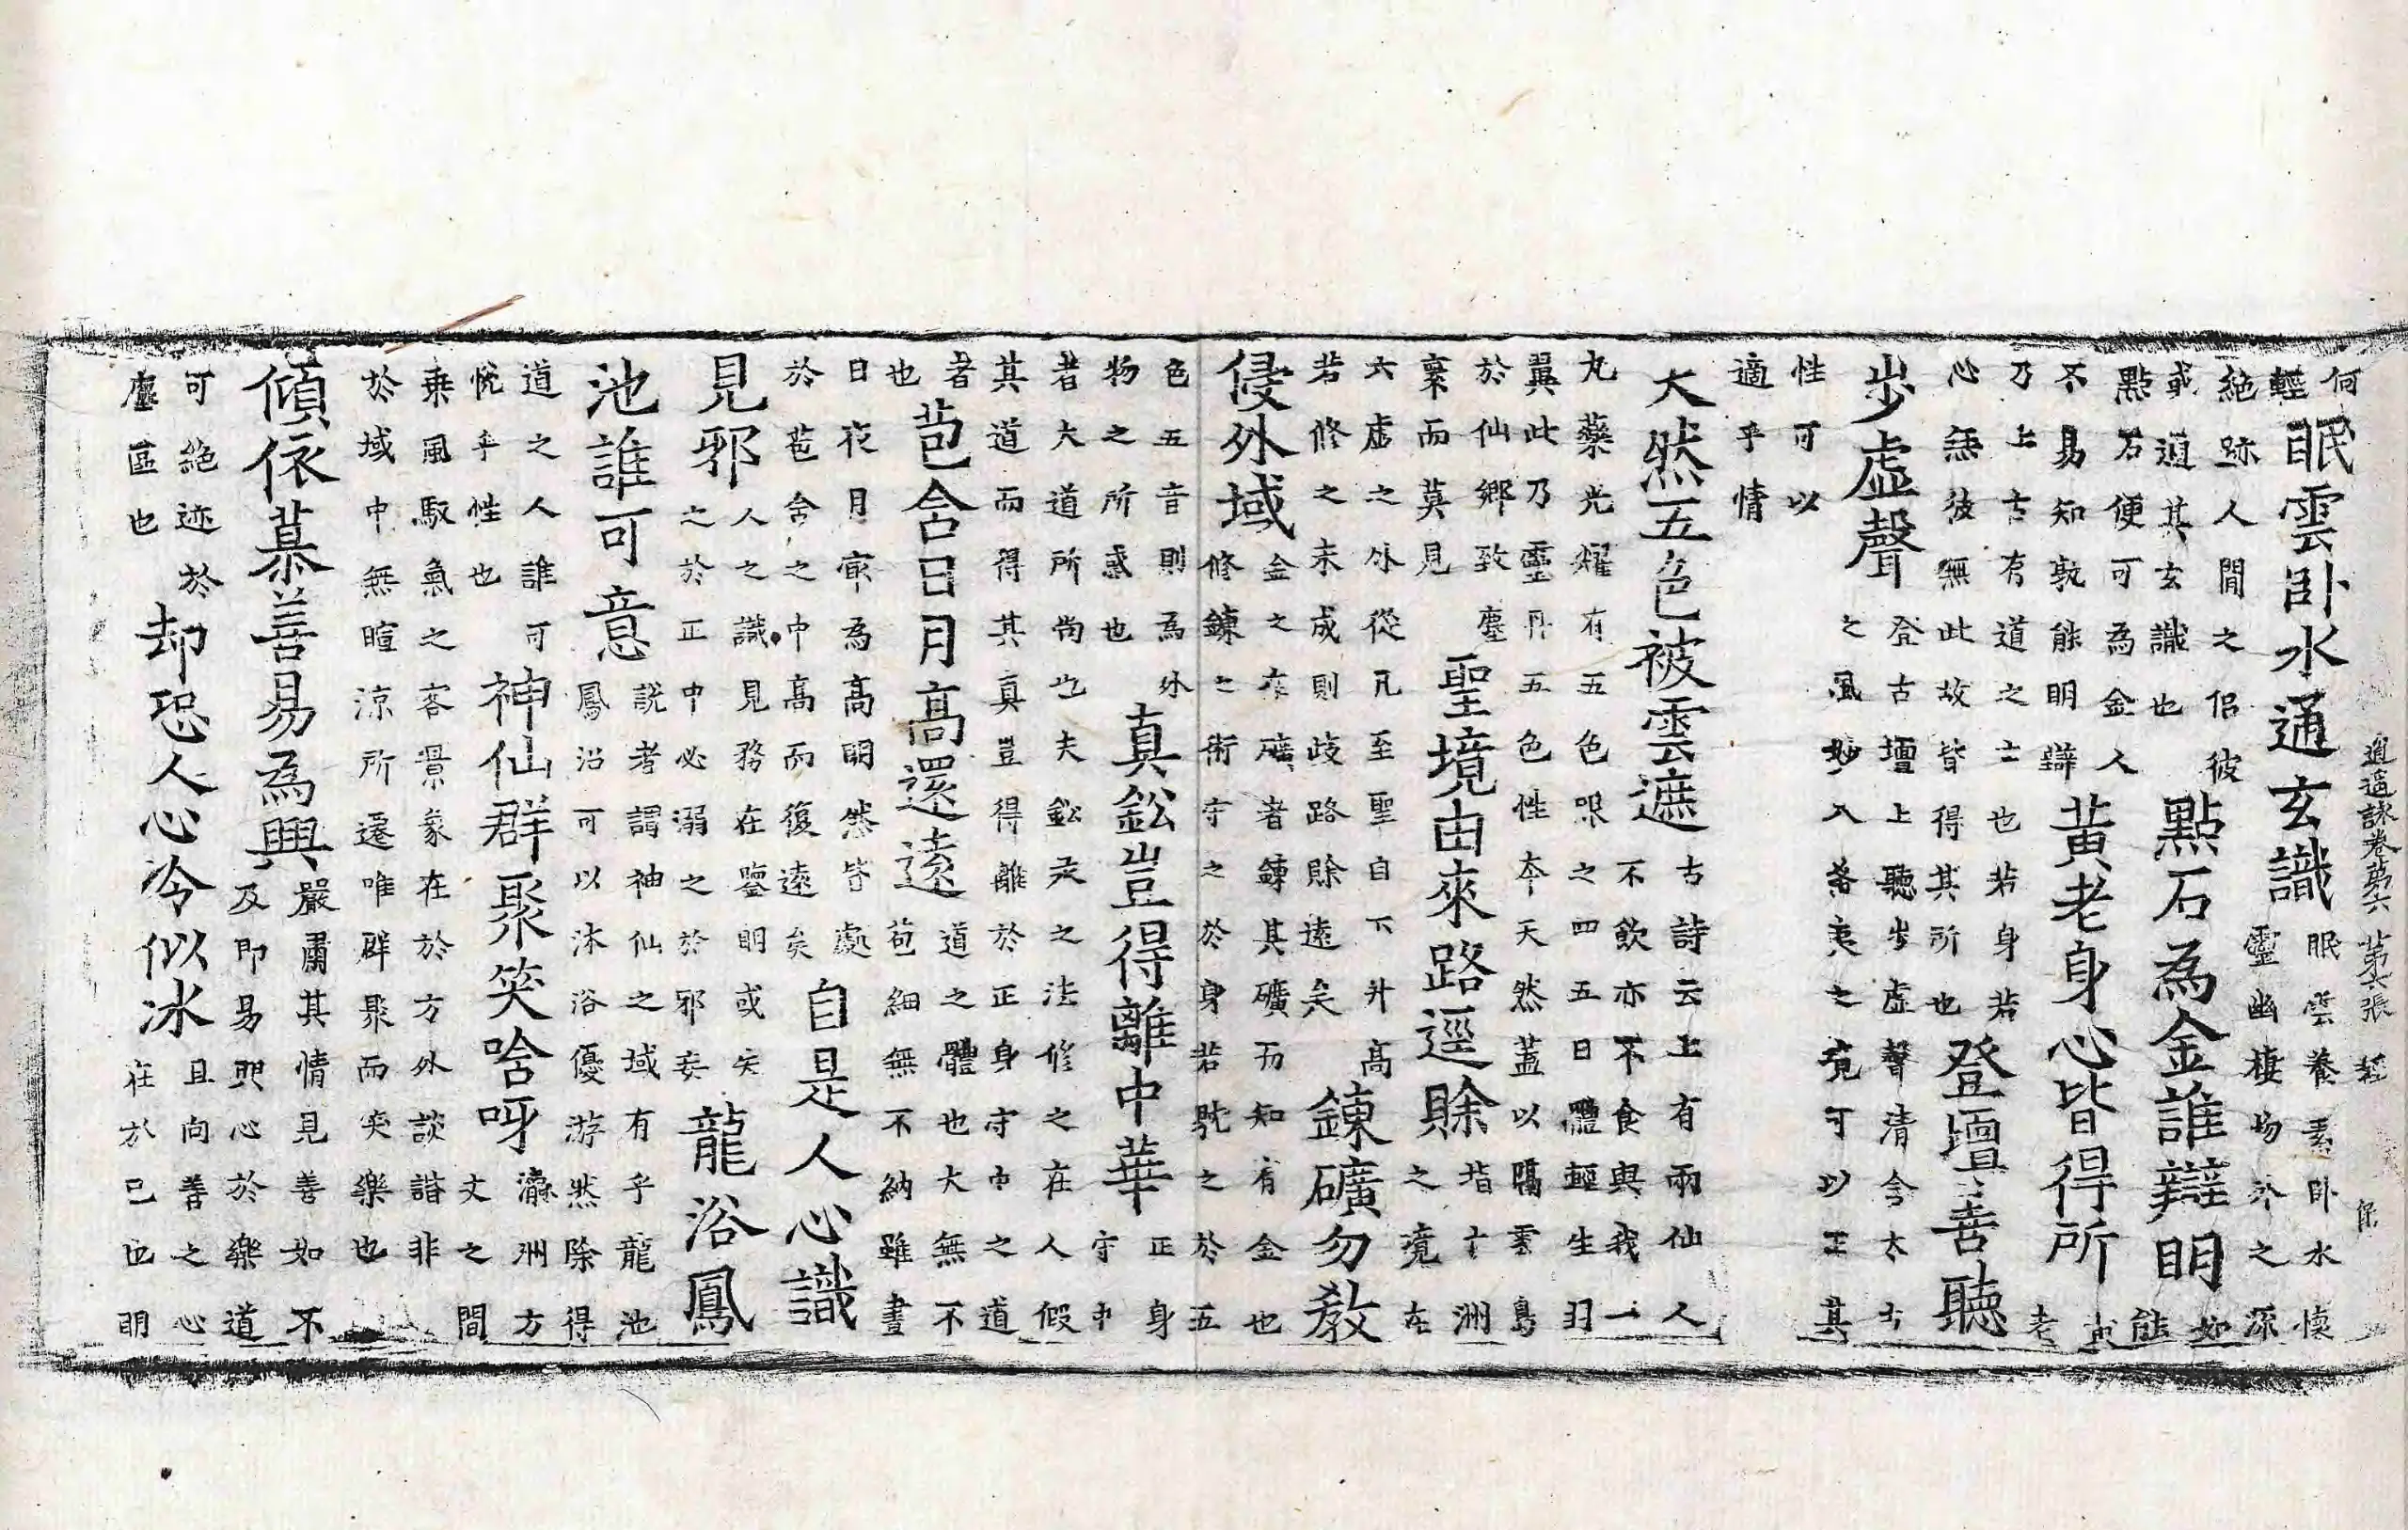 逍遙詠卷第六 第六張
何
輕
眠雲卧水通玄識
眠雲養素卧水懷
靈幽棲物外之深
絕跡人間之侶彼
或通其玄識也
點石為金誰辯明
如
能
點石便可為金人
不易知孰能明辯
黃老身心皆得所
黃
老
乃上古有道之士也若身若
心無彼無此故皆得其所也
登壇喜聽
步虛聲
登古壇上聽步虛聲清含太古
之風妙入希夷之境可以正其
性可以
適乎情
大然五色被雲遮
古詩云上有兩仙人
不飲亦不食與我一
丸藥光耀有五色服之四五日體輕生羽
翼此乃靈丹五色性本天然蓋以隅雲島
於仙鄉致塵
寰而莫見
聖境由來路逕賖
指十洲
之境在
六虛之外從凡至聖自下升高
若修之未成則歧路賖遠矣
鍊礦勿教
侵外域
金之在礦者鍊其礦而知有金也
修鍊之術守之於身若耽之於五
色五音則為外
物之所惑也
真鈆豈得離中華
正身
守中
者大道所尚也夫鈆汞之法修之在人假
其道而得其真豈得離於正身守中之道
者
也
苞含日月高還遠
道之體也大無不
苞細無不納雖晝
日夜月寂為高明然皆處
於苞含之中高而復遠矣
自是人心識
見邪
人之識見務在鑒明或失
之於正中必溺之於邪妄
龍浴鳳
池誰可意
說者謂神仙之域有乎龍池
鳳沼可以沐浴優游然除得
道之人誰可
悅乎性也
神仙群聚笑唅呀
瀛洲方
丈之間
乗風馭氣之客景象在於方外談諧非
於域中無暄涼所遷唯群聚而笑樂也
傾依慕善易為興
嚴肅其情見善如不
及即易興心於樂道
可絕迹於
塵區也
却恐人心冷似冰
且向善之心
在於己也明